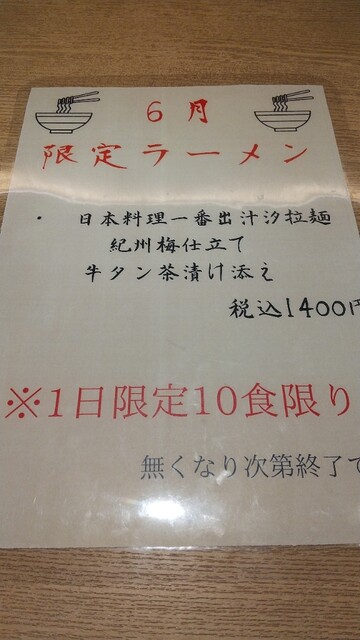 6月
限定ラーメン
・ 日本料理一番出汁汐拉麺
紀州梅仕立て
牛タン茶漬け添え
税込1400円
※1日限定10食限り
無くなり次第終了で